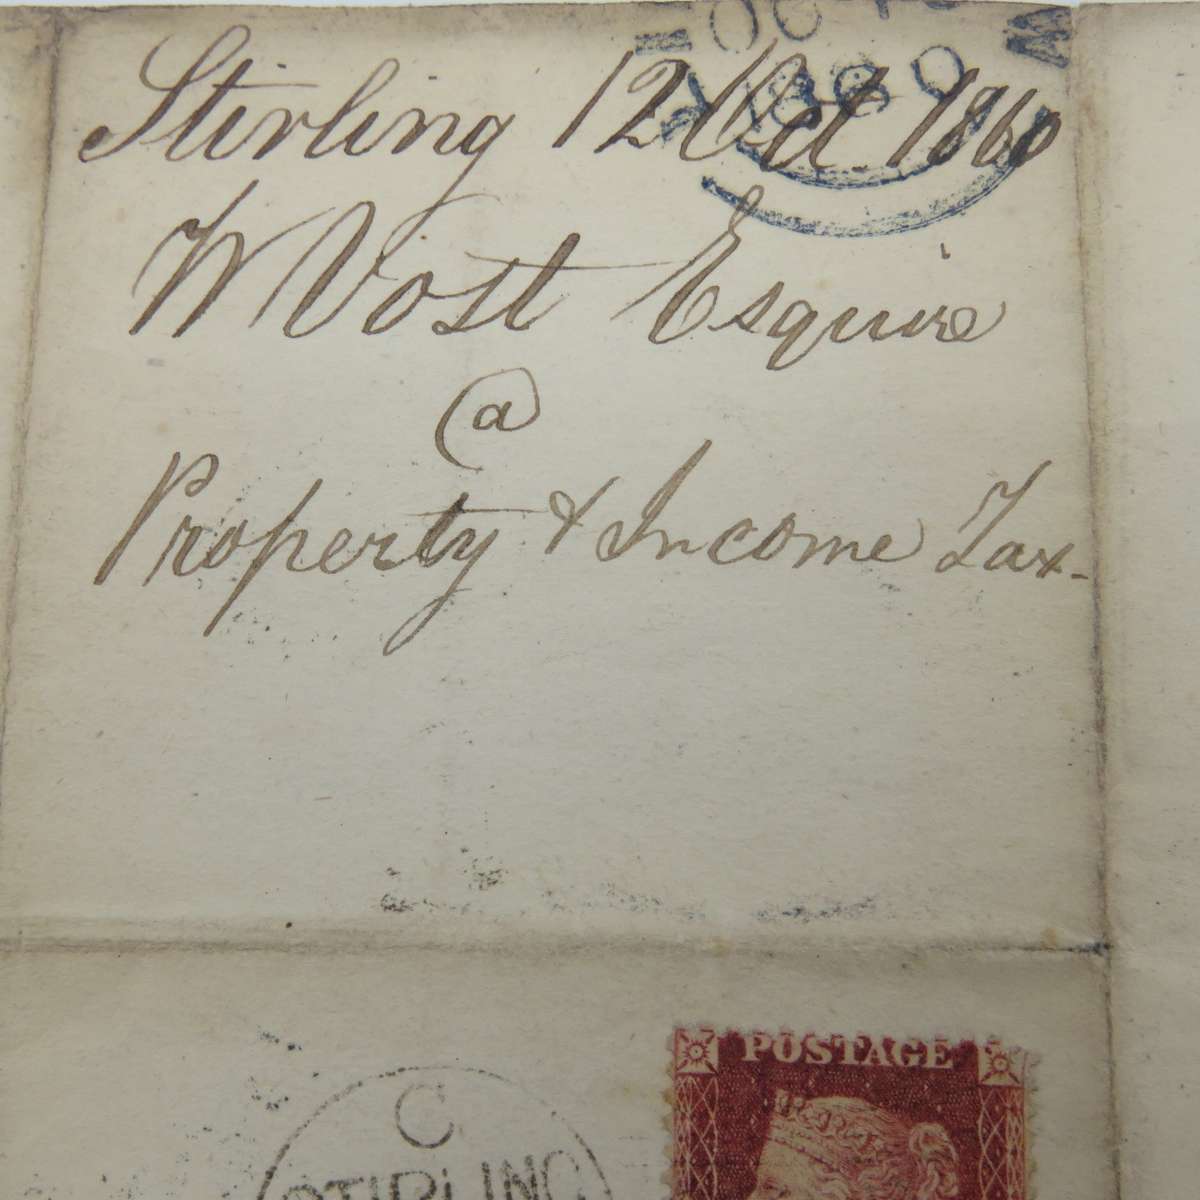 OC
1860
Stirling 12 Oct 1860
W Vost Esquire
@
Property & Income Tax.
POSTAGE
C
STIRLING